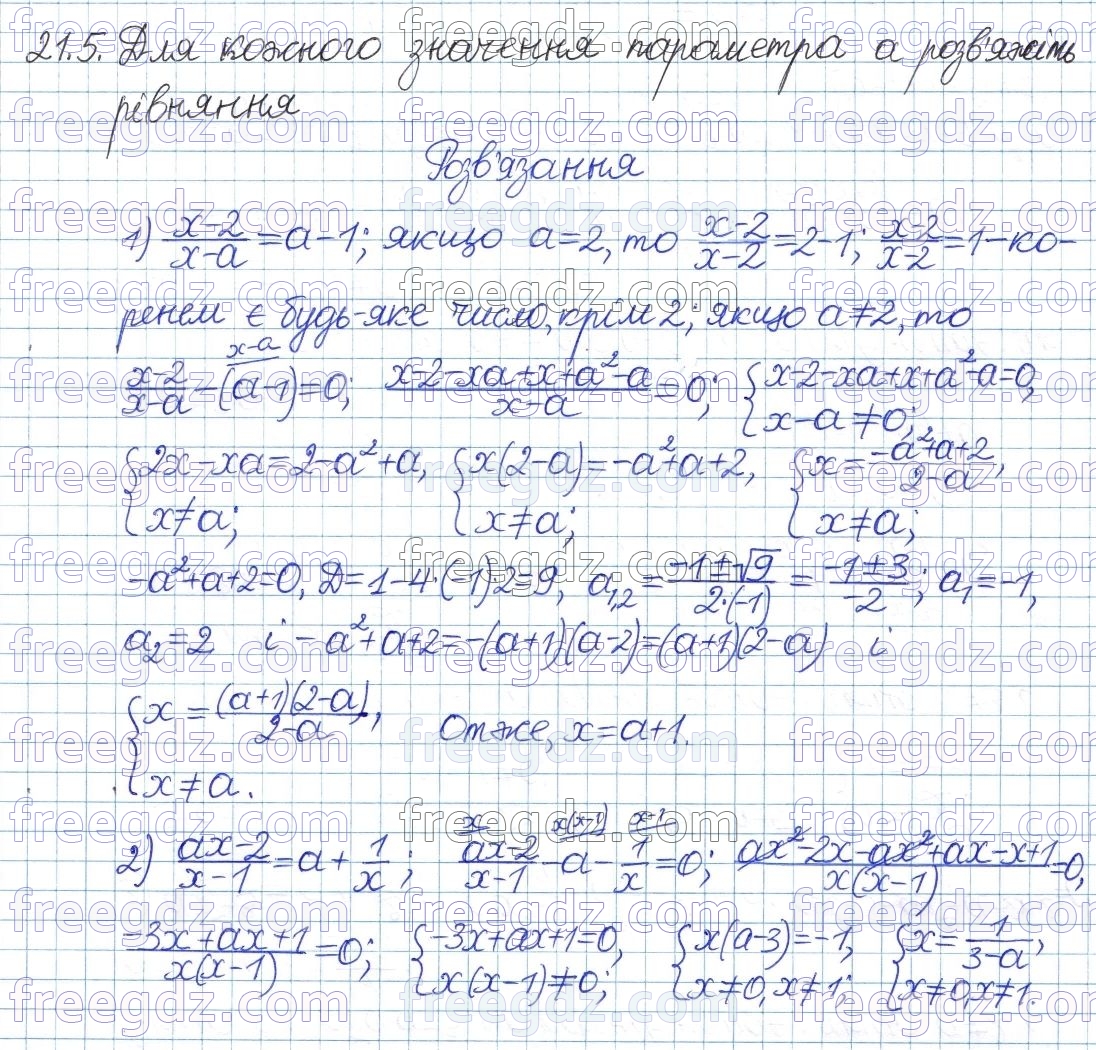 21.5. Для кожного значення параметра а розв'яжіть
рівняння
Розв'язання
1) (x-2)/(x-a) = a-1; якщо a=2, то (x-2)/(x-2) = 2-1; (x-2)/(x-2) = 1 - ко-
ренем є будь-яке число, крім 2; якщо a≠2, то
x-a
(x-2)/(x-a) - (a-1) = 0; (x-2-xa+x+a²-a)/(x-a) = 0; { x-2-xa+x+a²-a=0, x-a≠0;
{ 2x-xa=2-a²+a, x≠a; { x(2-a)=-a²+a+2, x≠a; { x=(-a²+a+2)/(2-a), x≠a;
-a²+a+2=0, Д=1-4·(-1)·2=9, a₁,₂ = (-1±√9)/(2·(-1)) = (-1±3)/(-2); a₁=-1,
a₂=2 і -a²+a+2=-(a+1)(a-2)=(a+1)(2-a) і
{ x=((a+1)(2-a))/(2-a), x≠a. Отже, x=a+1.
x x(x-1) x-1
2) (ax-2)/(x-1) = a + 1/x; (ax-2)/(x-1) - a - 1/x = 0; (ax²-2x-ax²+ax-x+1)/(x(x-1)) = 0,
(-3x+ax+1)/(x(x-1)) = 0; { -3x+ax+1=0, x(x-1)≠0; { x(a-3)=-1, x≠0, x≠1; { x=1/(3-a), x≠0, x≠1.
freegdz.com freegdz.com freegdz.com